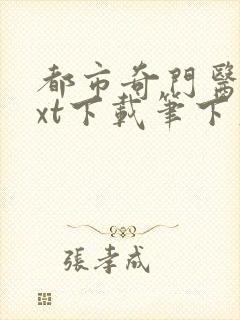 都市奇門醫
xt下載筆下
張孝成